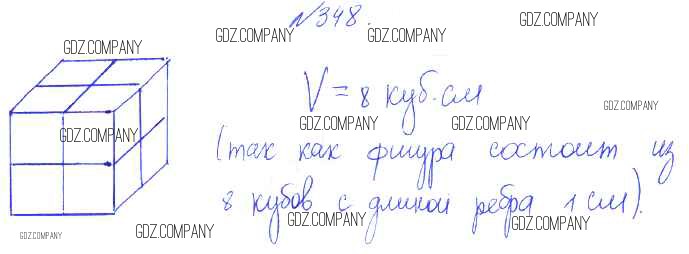 №348.
GDZ.COMPANY GDZ.COMPANY GDZ.COMPANY
V = 8 куб.см
GDZ.COMPANY
GDZ.COMPANY GDZ.COMPANY GDZ.COMPANY
(так как фигура состоит из
8 кубов с длиной ребра 1 см).
GDZ.COMPANY GDZ.COMPANY
GDZ.COMPANY GDZ.COMPANY